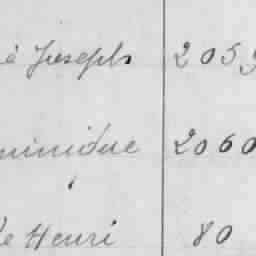 è Joseph 2059
minique 2060
de Henri 80